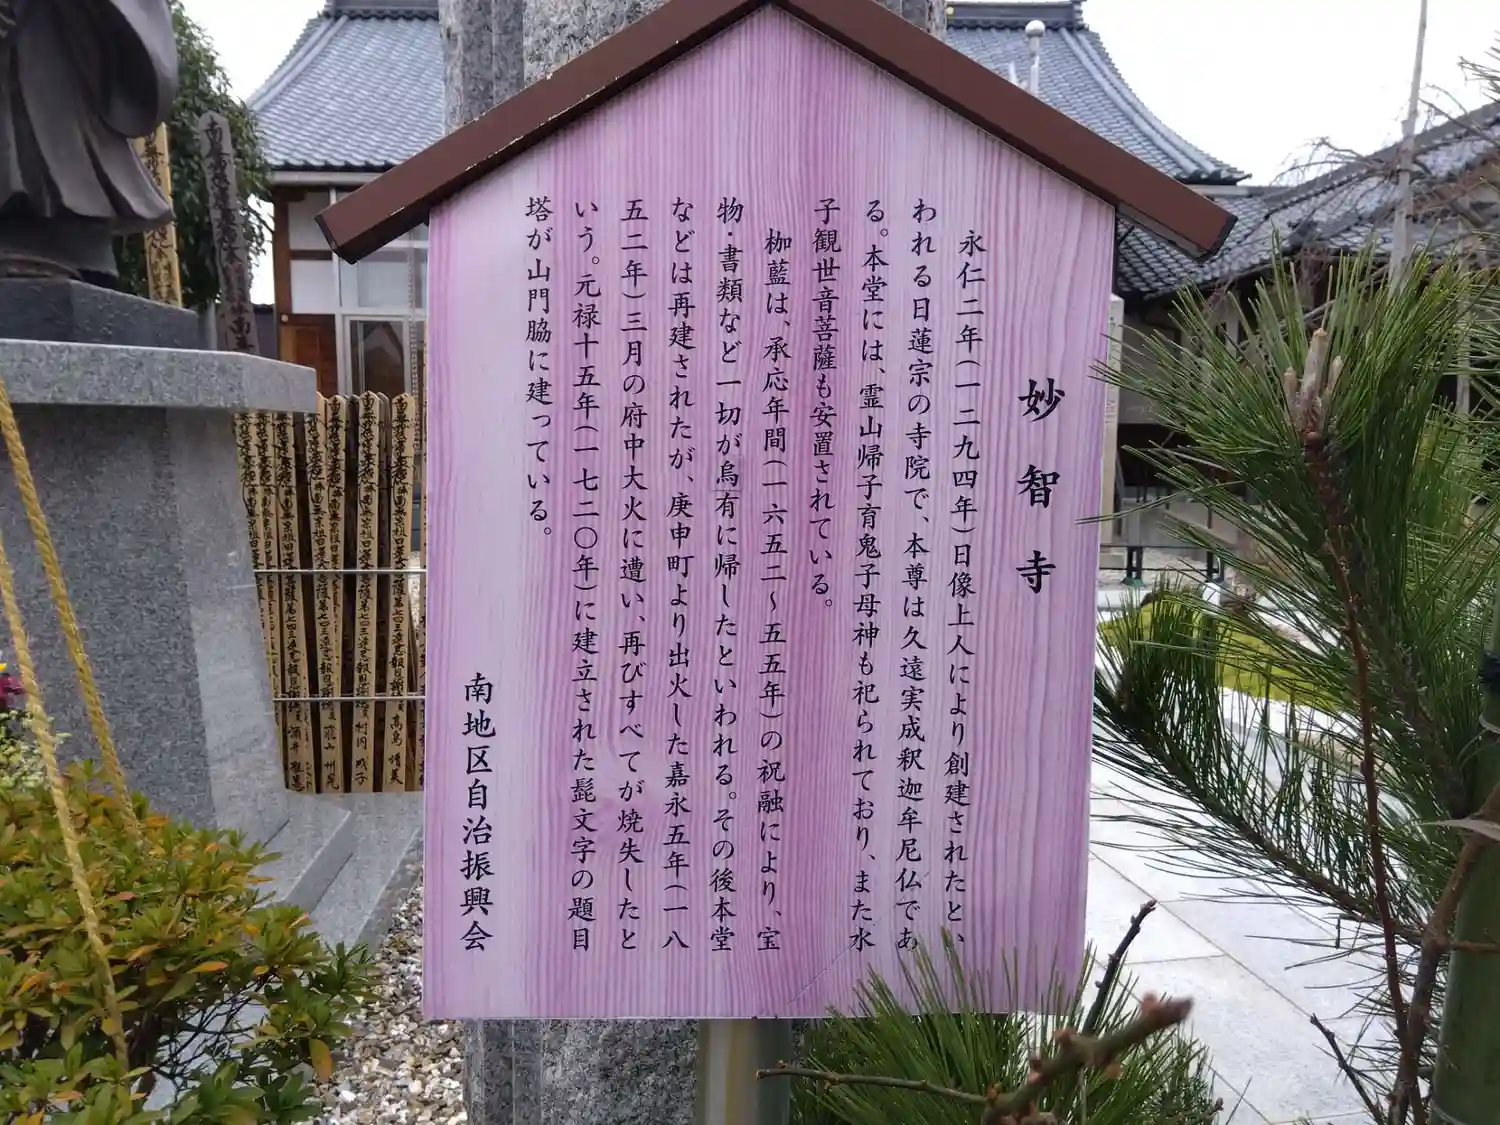 妙智寺
永仁二年(一二九四年)日像上人により創建されたと、い
われる日蓮宗の寺院で、本尊は久遠実成釈迦牟尼仏であ
る。本堂には、霊山帰子育鬼子母神も祀られており、また水
子観世音菩薩も安置されている。
枷藍は、承応年間(一六五二~五五年)の祝融により、宝
物・書類など一切が烏有に帰したといわれる。その後本堂
などは再建されたが、庚申町より出火した嘉永五年(一八
五二年)三月の府中大火に遭い、再びすべてが焼失したと
いう。元禄十五年(一七二〇年)に建立された髭文字の題目
塔が山門脇に建っている。
南地区自治振興会